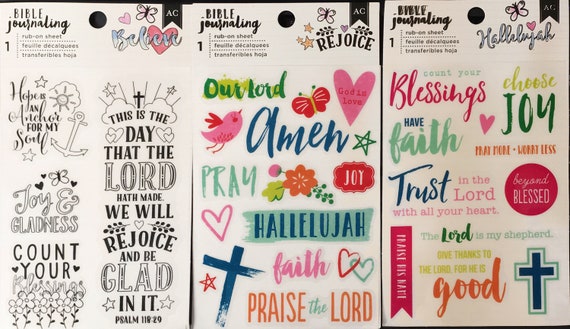 BIBLE
journaling
AC
1
rub-on sheet
feuille décalquées
transferibles hoja
Believe
Hope is
an
Anchor
FOR MY
Soul
Joy &
GLADNESS
COUNT
YOUR
Blessings
THIS IS THE
DAY
THAT THE
LORD
HATH MADE.
WE WILL
REJOICE
AND BE
GLAD
IN IT.
PSALM 118:24
BIBLE
journaling
AC
1
rub-on sheet
feuille décalquées
transferibles hoja
REJOICE
Our Lord
God is
love
Amen
PRAY
JOY
HALLELUJAH
faith
PRAISE the LORD
BIBLE
journaling
AC
1
rub-on sheet
feuille décalquées
transferibles hoja
Hallelujah
count your
Blessings
choose
JOY
HAVE
faith
PRAY MORE • WORRY LESS
Trust in the
Lord
with all your heart.
beyond
BLESSED
PRAISE HIS NAME
The Lord is my shepherd.
GIVE THANKS TO
THE LORD, FOR HE IS
good